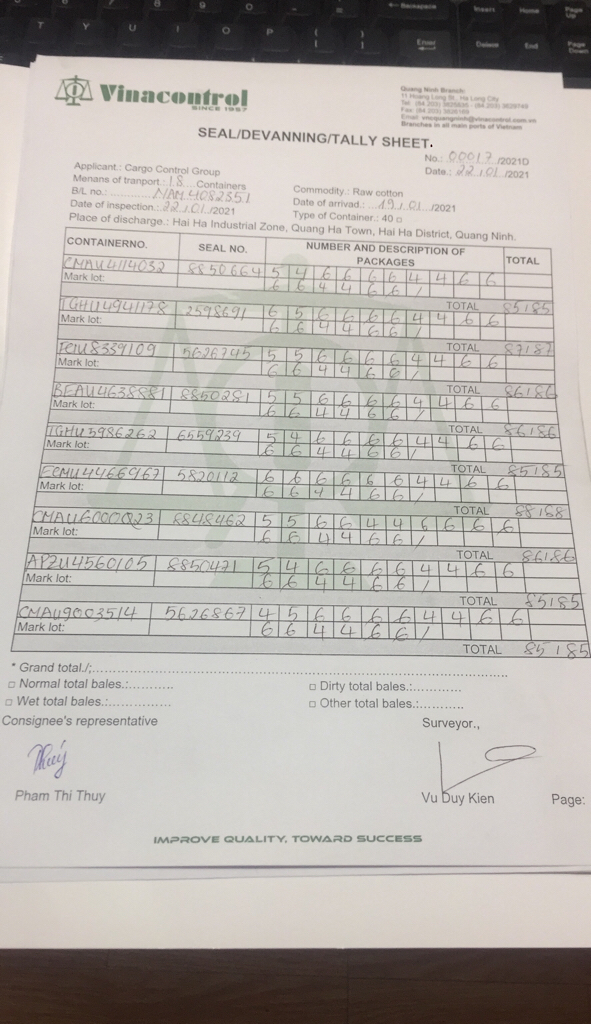 Vinacontrol
SINCE 1957
Quang Ninh Branch:
11 Hoang Long St., Ha Long City
Branches in all main ports of Vietnam
SEAL/DEVANNING/TALLY SHEET.
No.: 00017 /2021D
Date.: 22/01 /2021
Applicant.: Cargo Control Group
Menans of tranport.: 18 Containers
B/L no.: NAM4082351
Date of inspection.: 22/01/2021
Commodity.: Raw cotton
Date of arrivad.: 19/01/2021
Type of Container.: 40 □
Place of discharge.: Hai Ha Industrial Zone, Quang Ha Town, Hai Ha District, Quang Ninh.
CONTAINERNO. SEAL NO. NUMBER AND DESCRIPTION OF PACKAGES TOTAL
CMAU4114032 8850664 5 4 6 6 6 6 4 4 6 6
Mark lot: 6 6 4 4 6 6 /
TOTAL 85185
TGHU4941178 2598691 6 5 6 6 6 6 4 4 6 6
Mark lot: 6 6 4 4 6 6 /
TOTAL 87187
FCIU8339109 5626745 5 5 6 6 6 6 4 4 6 6
Mark lot: 6 6 4 4 6 6 /
TOTAL 86186
BEAU4638881 8850281 5 5 6 6 6 6 4 4 6 6
Mark lot: 6 6 4 4 6 6 /
TOTAL 86186
TGHU5986262 6559239 5 4 6 6 6 6 4 4 6 6
Mark lot: 6 6 4 4 6 6 /
TOTAL 85185
ECMU4466967 5820112 6 6 6 6 6 6 4 4 6 6
Mark lot: 6 6 4 4 6 6 /
TOTAL 88188
8848462 5 5 6 6 4 4 6 6 6 6
Mark lot: 6 6 4 4 6 6 /
TOTAL 86186
APZU4560105 8850471 5 4 6 6 6 6 4 4 6 6
Mark lot: 6 6 4 4 6 6 /
TOTAL 85185
CMAU9003514 5626867 4 5 6 6 6 6 4 4 6 6
Mark lot: 6 6 4 4 6 6 /
TOTAL 85185
* Grand total./;
□ Normal total bales.:
□ Dirty total bales.:
□ Wet total bales.:
□ Other total bales.:
Consignee's representative
Surveyor.,
Thuý
Pham Thi Thuy
Vu Duy Kien
Page:
IMPROVE QUALITY, TOWARD SUCCESS